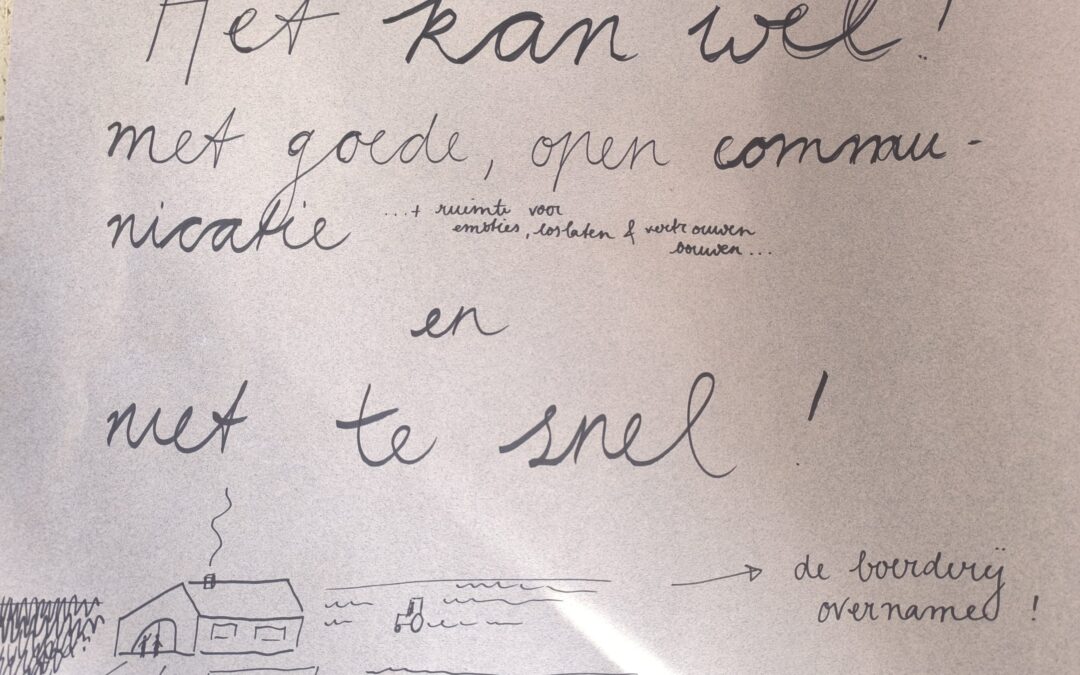 Het kan wel!
met goede, open commu-
nicatie
...+ ruimte voor
emoties, loslaten & vertrouwen
bouwen...
en
niet te snel!
de boerderij
overname!